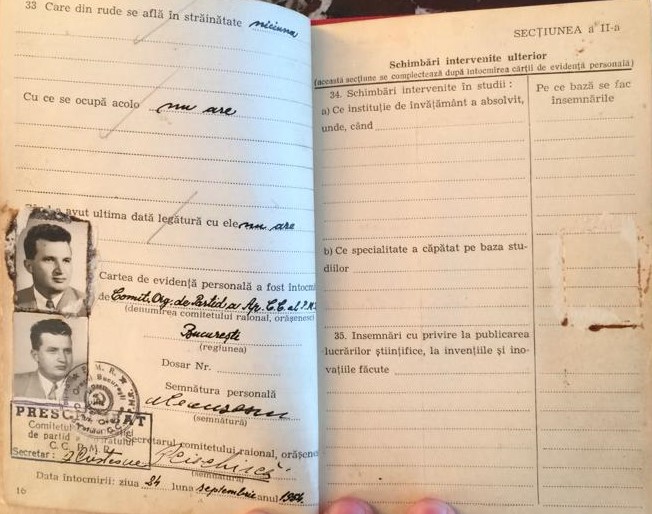 33 Care din rude se află în străinătate niciuna
Cu ce se ocupă acolo nu are
avut ultima dată legătură cu ele nu are
Cartea de evidență personală a fost întocmi
de Comit. Org. de Partid a Ap. C.C. al P.M.R.
(denumirea comitetului raional, orășenesc
București
(regiunea)
Dosar Nr.
Semnătura personală
(semnătură)
PRESC
Comitetul
de partid
C. C. P.M.R.
Secretar:
Secretarul comitetului raional, orășenesc
(semnătura)
Data întocmirii: ziua 24 luna septembrie anul 1954
16
SECȚIUNEA a II-a
Schimbări intervenite ulterior
(această secțiune se complectează după întocmirea cărții de evidență personală)
34. Schimbări intervenite în studii:
a) Ce instituție de învățământ a absolvit,
unde, când
Pe ce bază se fac
însemnările
b) Ce specialitate a căpătat pe baza stu-
diilor
35. Insemnări cu privire la publicarea
lucrărilor științifice, la invențiile și ino-
vațiile făcute